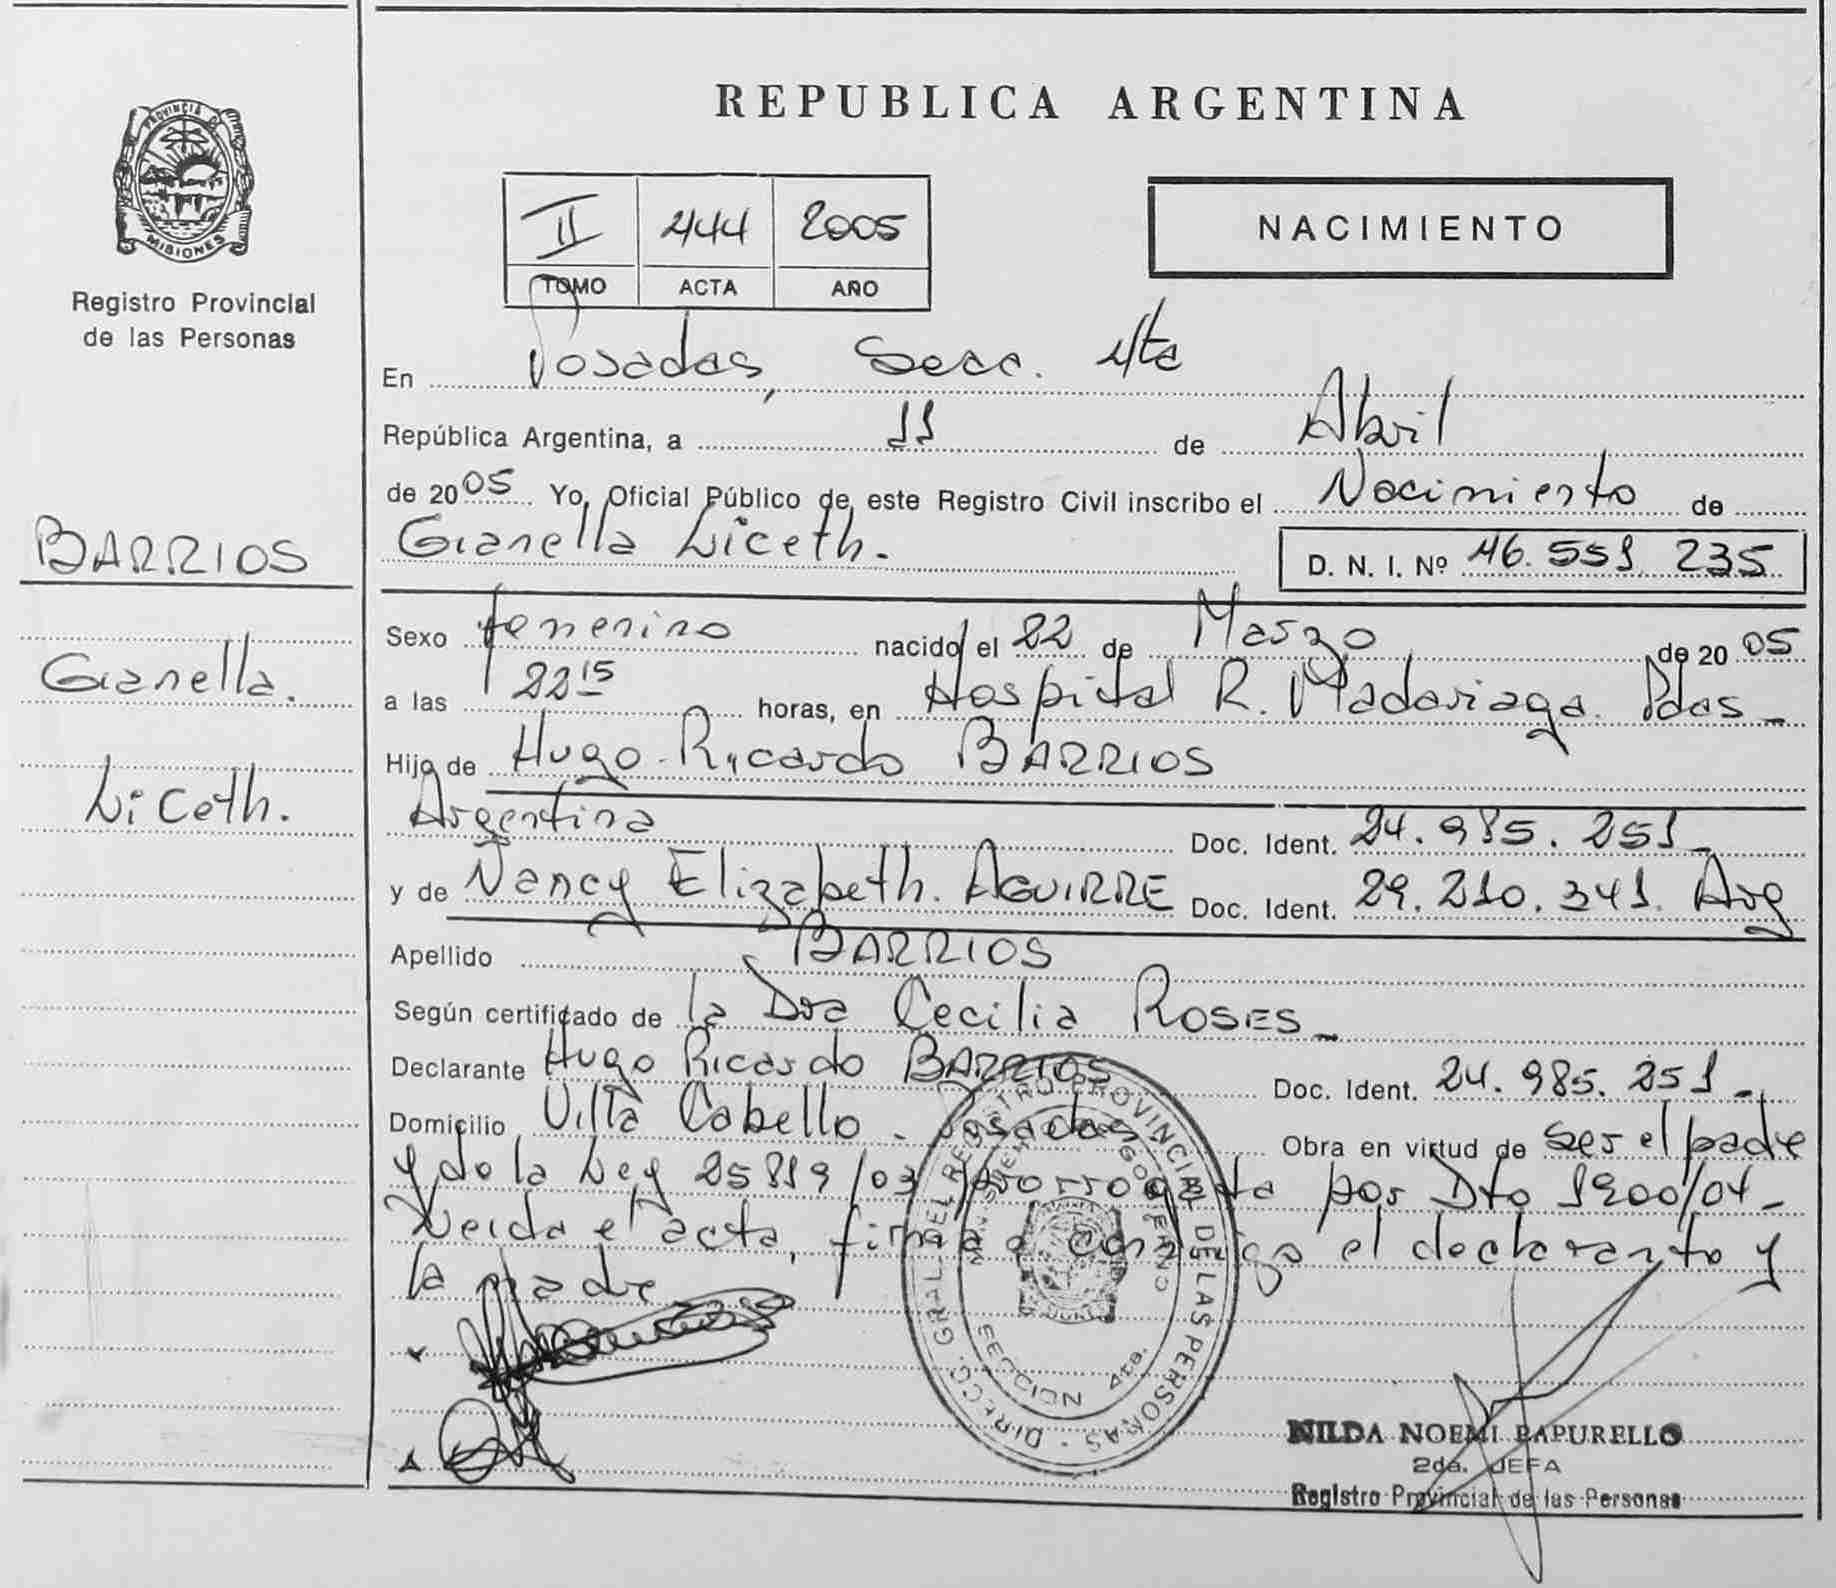 PROVINCIA DE
MISIONES
Registro Provincial
de las Personas
BARRIOS
Gianella.
Liceth.
REPUBLICA ARGENTINA
II 444 2005
TOMO ACTA AÑO
NACIMIENTO
En Posadas, Secc. 4ta
República Argentina, a 11 de Abril
de 2005 Yo, Oficial Público de este Registro Civil inscribo el Nacimiento de
Gianella Liceth.
D. N. I. Nº 46.551.235
Sexo femenino nacido el 22 de Marzo de 2005
a las 22 15 horas, en Hospital R. Madariaga. Pdas -
Hijo de Hugo Ricardo BARRIOS
Argentina Doc. Ident. 24.985.251 -
y de Nancy Elizabeth. AGUIRRE Doc. Ident. 29.210.341. Arg
Apellido BARRIOS
Según certificado de la Dra Cecilia ROSES -
Declarante Hugo Ricardo BARRIOS Doc. Ident. 24.985.251 -
Domicilio Villa Cabello - Posadas Obra en virtud de ser el padre
y de la Ley 25819/03 prorrogata por Dto 1900/04 -
Leida el acta, firman conmigo el declarante y
la madre
DIRECC. GRAL. DEL REGISTRO PROVINCIAL DE LAS PERSONAS
SECCION 4ta.
NILDA NOEMI PAPURELLO
2da. JEFA
Registro Provincial de las Personas